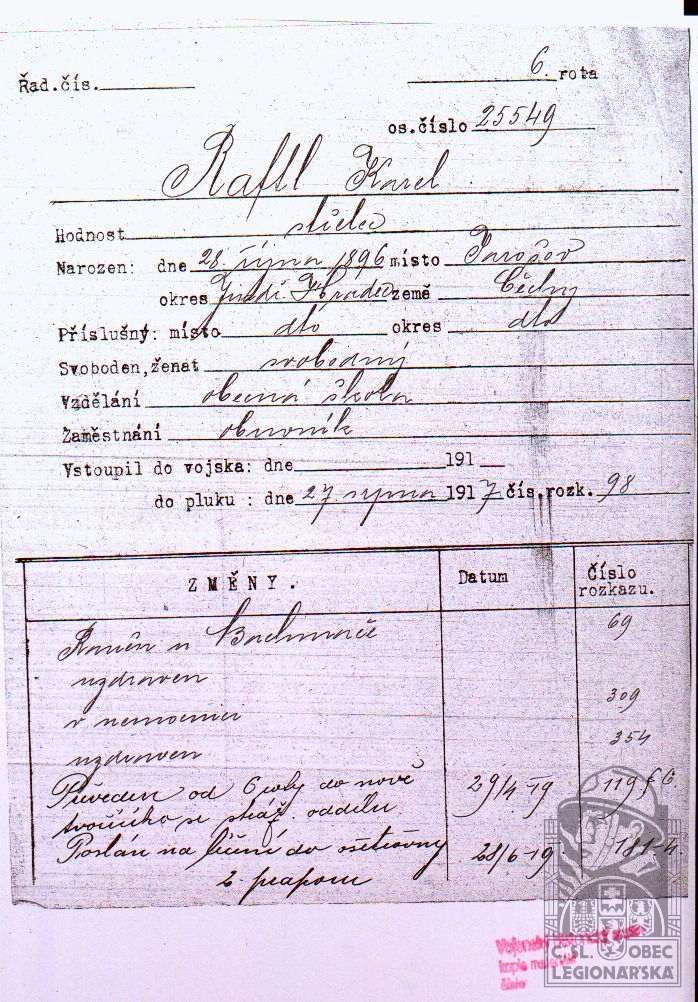 Řad.čís. 6. rota
os.číslo 25549
Raftl Karel
Hodnost střelec
Narozen: dne 28. října 1896 místo Jarošov
okres Jindř. Hradec země Čechy
Příslušný: místo dto okres dto
Svoboden,ženat svobodný
Vzdělání obecná škola
Zaměstnání obuvník
Vstoupil do vojska: dne 191
do pluku : dne 27 srpna 1917 čís.rozk. 98
ZMĚNY. Datum Číslo
rozkazu.
Raněn u Bachmače 69
uzdraven
v nemocnici 309
uzdraven 354
Převeden od 6 roty do nově 29/4 -19 119 § 6.
tvořícího se stráž. oddílu
Poslán na léčení do ošetřovny 28/6 -19 181-4.
2. praporu
Vojenský
kopie
Č.SL. OBEC
LEGIONÁŘSKÁ